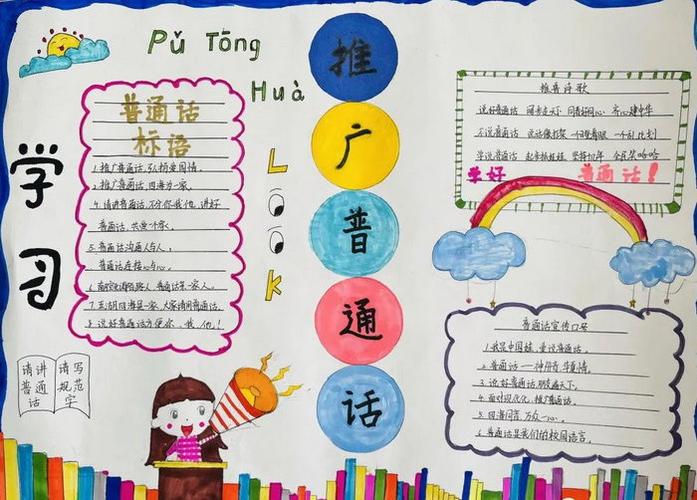 Pǔ Tōng
Huà
推
广
普
通
话
学
习
Look
普通话
标语
1.推广普通话,弘扬爱国情。
2.推广普通话,四海为一家。
4.请讲普通话,不分你我他,讲好
普通话,共爱一个家。
5.普通话沟通人与人,
普通话连接心与心。
7.五湖四海是一家,大家请用普通话。
8.说好普通话方便你、我、他!
请讲
普通
话
请写
规范
字
推普诗歌
学好
普通话!
普通话宣传口号
1.我是中国娃,爱说普通话。
2.普通话——神州音,华夏情。
3.说好普通话,朋友遍天下。
4.面对现代化,推广普通话。
5.四海同音,万众一心。
6.普通话是我们的校园语言。